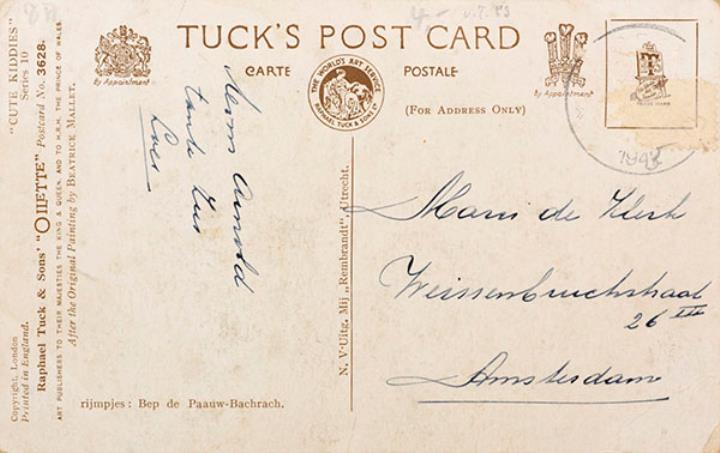 "CUTE KIDDIES"
Series 10
Raphael Tuck & Sons' "OILETTE" Postcard No. 3628.
ART PUBLISHERS TO THEIR MAJESTIES THE KING & QUEEN, AND TO H.R.H. THE PRINCE OF WALES.
After the Original Painting by BEATRICE MALLET.
Copyright, London
Printed in England.
By Appointment
TUCK'S POST CARD
CARTE POSTALE
THE WORLD'S ART SERVICE
RAPHAEL TUCK & SONS LTD
(FOR ADDRESS ONLY)
By Appointment
T
TRADE MARK
4,-
194
Arnold
tante Zus
Loes
N. V-Uitg. Mij „Rembrandt", Utrecht.
rijmpjes: Bep de Paauw-Bachrach.
Mans de Klerk
Weissenbruchstraat
26 III
Amsterdam